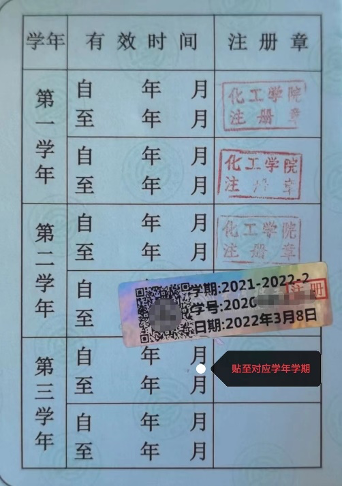 学年 有效时间 注册章
第一学年
自 年 月
至 年 月
化工学院
注册章
自 年 月
至 年 月
化工学院
注册章
第二学年
自 年 月
至 年 月
化工学院
注册章
自
至
学期:2021-2022-2
学号:2020
日期:2022年3月8日
注册
第三学年
自 年 月
至 年 月
贴至对应学年学期
自 年 月
至 年 月